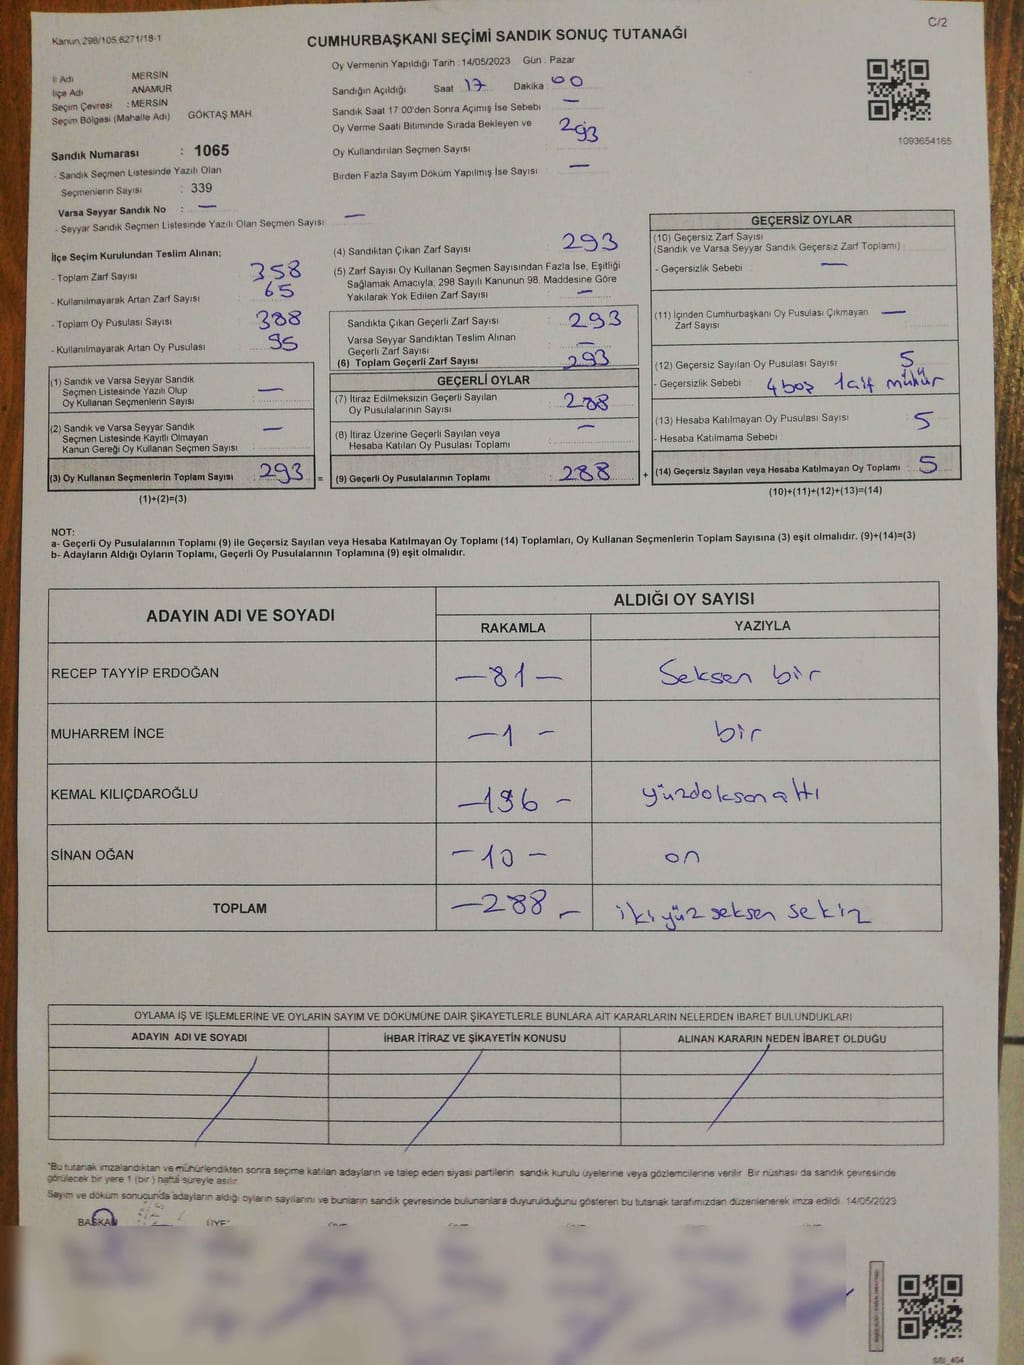 C/2
Kanun 298/105,6271/18-1
CUMHURBAŞKANI SEÇİMİ SANDIK SONUÇ TUTANAĞI
İl Adı MERSİN
İlçe Adı ANAMUR
Seçim Çevresi : MERSİN
Seçim Bölgesi (Mahalle Adı) GÖKTAŞ MAH.
Sandık Numarası : 1065
- Sandık Seçmen Listesinde Yazılı Olan
Seçmenlerin Sayısı : 339
Varsa Seyyar Sandık No : —
- Seyyar Sandık Seçmen Listesinde Yazılı Olan Seçmen Sayısı : —
Oy Vermenin Yapıldığı Tarih : 14/05/2023 Gün : Pazar
Sandığın Açıldığı Saat 17 Dakika 00
Sandık Saat 17:00'den Sonra Açımış İse Sebebi —
Oy Verme Saati Bitiminde Sırada Bekleyen ve
Oy Kullandırılan Seçmen Sayısı 293
Birden Fazla Sayım Döküm Yapılmış İse Sayısı : —
1093654165
İlçe Seçim Kurulundan Teslim Alınan;
- Toplam Zarf Sayısı : 358
- Kullanılmayarak Artan Zarf Sayısı : 65
- Toplam Oy Pusulası Sayısı : 388
- Kullanılmayarak Artan Oy Pusulası : 95
(1) Sandık ve Varsa Seyyar Sandık
Seçmen Listesinde Yazılı Olup
Oy Kullanan Seçmenlerin Sayısı : —
(2) Sandık ve Varsa Seyyar Sandık
Seçmen Listesinde Kayıtlı Olmayan
Kanun Gereği Oy Kullanan Seçmen Sayısı : —
(3) Oy Kullanan Seçmenlerin Toplam Sayısı : 293 =
(1)+(2)=(3)
(4) Sandıktan Çıkan Zarf Sayısı : 293
(5) Zarf Sayısı Oy Kullanan Seçmen Sayısından Fazla İse, Eşitliği
Sağlamak Amacıyla, 298 Sayılı Kanunun 98. Maddesine Göre
Yakılarak Yok Edilen Zarf Sayısı : —
Sandıkta Çıkan Geçerli Zarf Sayısı : 293
Varsa Seyyar Sandıktan Teslim Alınan
Geçerli Zarf Sayısı : —
(6) Toplam Geçerli Zarf Sayısı : 293
GEÇERLİ OYLAR
(7) İtiraz Edilmeksizin Geçerli Sayılan
Oy Pusulalarının Sayısı : 288
(8) İtiraz Üzerine Geçerli Sayılan veya
Hesaba Katılan Oy Pusulası Toplamı : —
(9) Geçerli Oy Pusulalarının Toplamı : 288 +
GEÇERSİZ OYLAR
(10) Geçersiz Zarf Sayısı
(Sandık ve Varsa Seyyar Sandık Geçersiz Zarf Toplamı) :
- Geçersizlik Sebebi : —
(11) İçinden Cumhurbaşkanı Oy Pusulası Çıkmayan : —
Zarf Sayısı
(12) Geçersiz Sayılan Oy Pusulası Sayısı : 5
- Geçersizlik Sebebi : 4 boş 1 çift mühür
(13) Hesaba Katılmayan Oy Pusulası Sayısı : 5
- Hesaba Katılmama Sebebi :
(14) Geçersiz Sayılan veya Hesaba Katılmayan Oy Toplamı : 5
(10)+(11)+(12)+(13)=(14)
NOT:
a- Geçerli Oy Pusulalarının Toplamı (9) ile Geçersiz Sayılan veya Hesaba Katılmayan Oy Toplamı (14) Toplamları, Oy Kullanan Seçmenlerin Toplam Sayısına (3) eşit olmalıdır. (9)+(14)=(3)
b- Adayların Aldığı Oyların Toplamı, Geçerli Oy Pusulalarının Toplamına (9) eşit olmalıdır.
ADAYIN ADI VE SOYADI ALDIĞI OY SAYISI
RAKAMLA YAZIYLA
RECEP TAYYİP ERDOĞAN —81— Seksen bir
MUHARREM İNCE —1— bir
KEMAL KILIÇDAROĞLU —196— yüzdoksan altı
SİNAN OĞAN —10— on
TOPLAM —288— iki yüz seksen sekiz
OYLAMA İŞ VE İŞLEMLERİNE VE OYLARIN SAYIM VE DÖKÜMÜNE DAİR ŞİKAYETLERLE BUNLARA AİT KARARLARIN NELERDEN İBARET BULUNDUKLARI
ADAYIN ADI VE SOYADI İHBAR İTİRAZ VE ŞİKAYETİN KONUSU ALINAN KARARIN NEDEN İBARET OLDUĞU
*Bu tutanak imzalandıktan ve mühürlendikten sonra seçime katılan adayların ve talep eden siyasi partilerin sandık kurulu üyelerine veya gözlemcilerine verilir. Bir nüshası da sandık çevresinde
görülecek bir yere 1 (bir) hafta süreyle asılır.
Sayım ve döküm sonucunda adayların aldığı oyların sayılarını ve bunların sandık çevresinde bulunanlara duyurulduğunu gösteren bu tutanak tarafımızdan düzenlenerek imza edildi. 14/05/2023
BAŞKAN ÜYE*